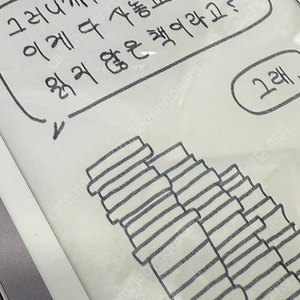 그러니까
이게 다 사놓고
읽지 않은 책이라고?
그래